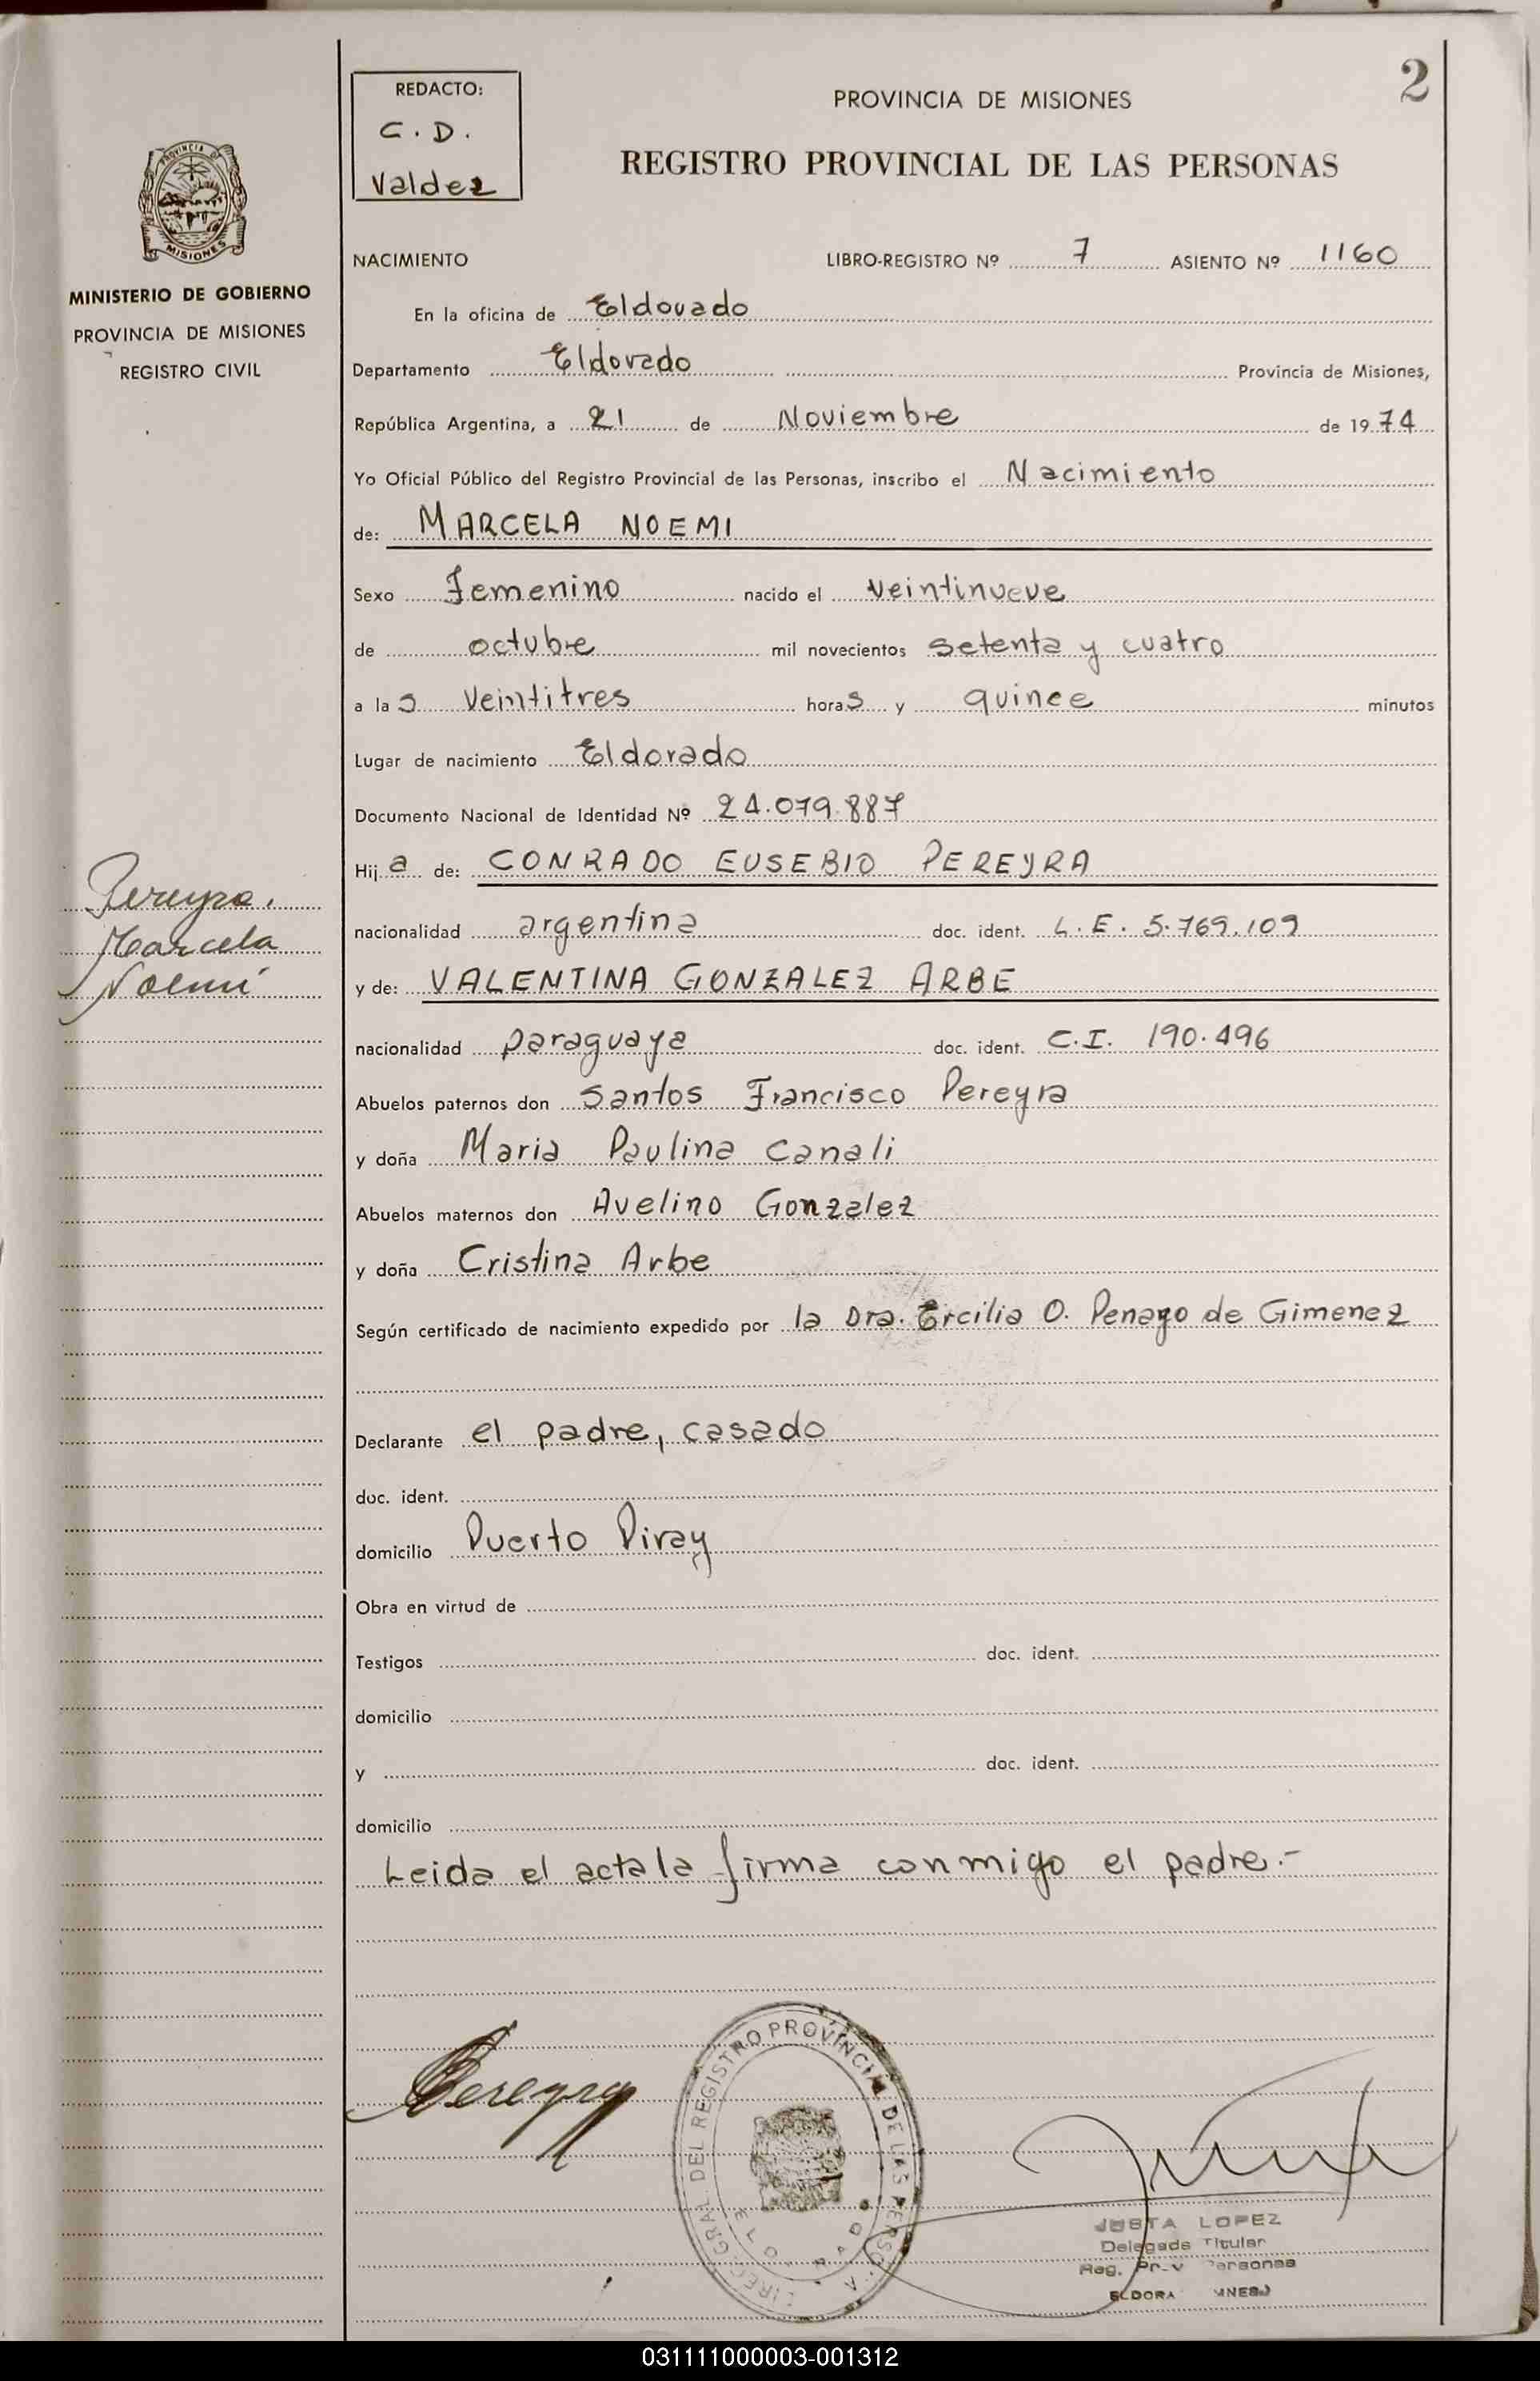 2
REDACTO:
C. D.
Valdez
PROVINCIA DE MISIONES
REGISTRO PROVINCIAL DE LAS PERSONAS
PROVINCIA DE
MISIONES
MINISTERIO DE GOBIERNO
PROVINCIA DE MISIONES
REGISTRO CIVIL
NACIMIENTO LIBRO-REGISTRO Nº 7 ASIENTO Nº 1160
En la oficina de Eldorado
Departamento Eldorado Provincia de Misiones,
República Argentina, a 21 de Noviembre de 1974
Yo Oficial Público del Registro Provincial de las Personas, inscribo el Nacimiento
de: MARCELA NOEMI
Sexo Femenino nacido el veintinueve
de octubre mil novecientos setenta y cuatro
a las veintitres horas y quince minutos
Lugar de nacimiento Eldorado
Documento Nacional de Identidad Nº 24.079.887
Hija de: CONRADO EUSEBIO PEREYRA
Pereyra,
Marcela
Noemí
nacionalidad argentina doc. ident. L.E. 5.769.109
y de: VALENTINA GONZALEZ ARBE
nacionalidad paraguaya doc. ident. C.I. 190.496
Abuelos paternos don Santos Francisco Pereyra
y doña Maria Paulina Canali
Abuelos maternos don Avelino Gonzalez
y doña Cristina Arbe
Según certificado de nacimiento expedido por la Dra. Ercilia O. Penayo de Gimenez
Declarante el padre, casado
doc. ident.
domicilio Puerto Piray
Obra en virtud de
Testigos doc. ident.
domicilio
y doc. ident.
domicilio
Leida el acta la firma conmigo el padre.-
Pereyra
DEL REGISTRO PROVINCIAL DE LAS
JUSTA LOPEZ
Delegada Titular
Reg. Personas
031111000003-001312